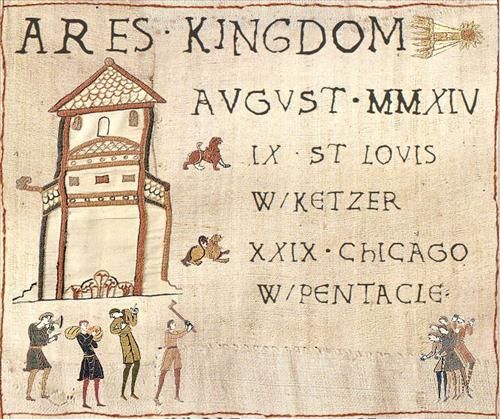 ARES · KINGDOM
AVGVST · MMXIV
IX · ST LOVIS
W/KETZER
XXIX · CHICAGO
W/PENTACLE: